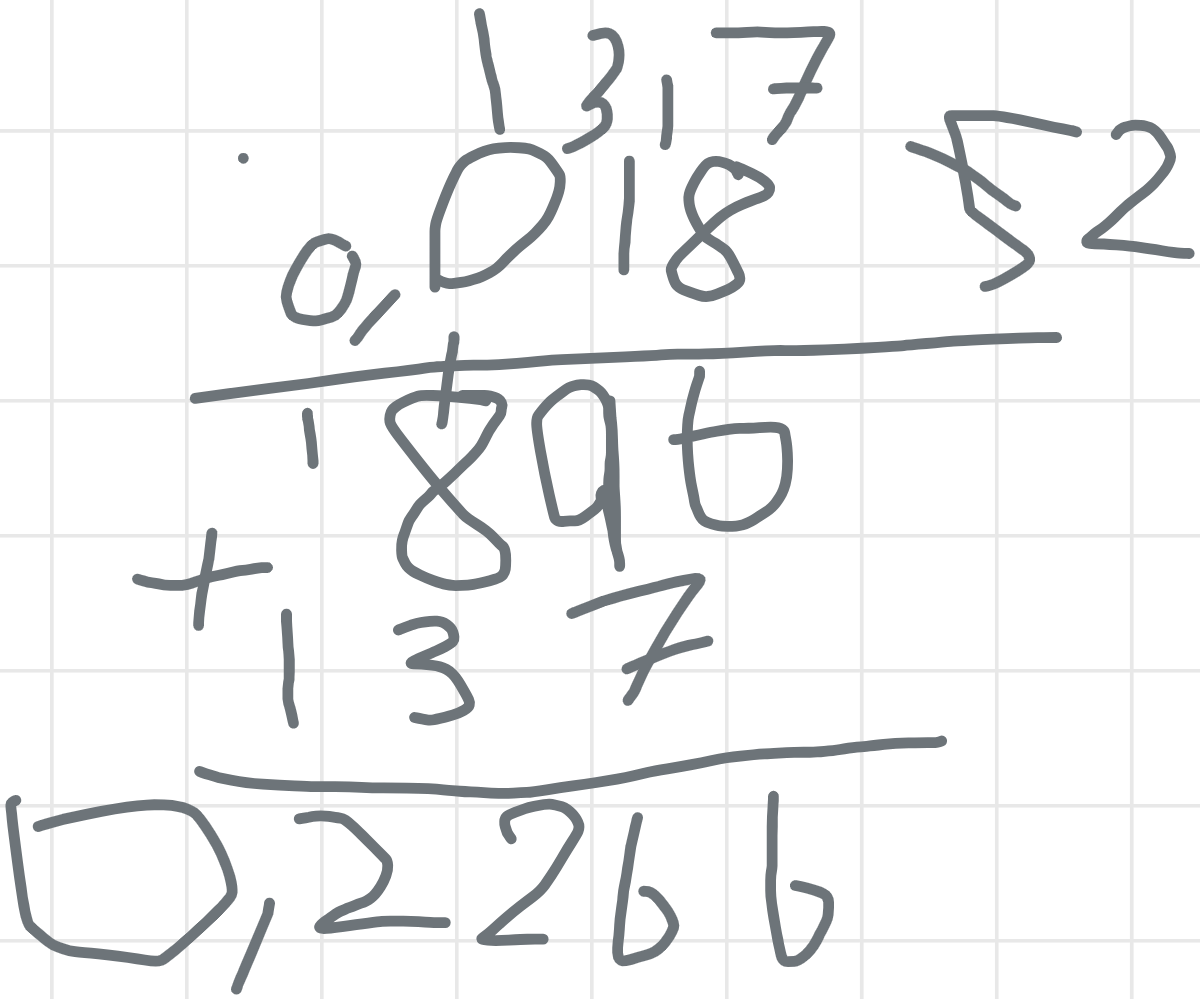 13,7
0,018 52
1
1 896
+
1 3 7
0,2266